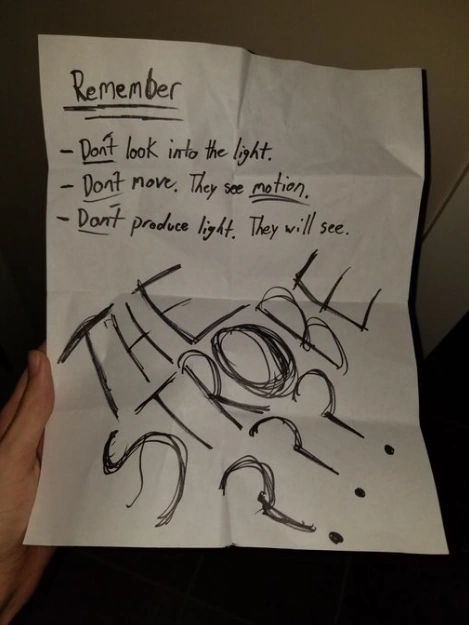 Remember
- Don't look into the light.
- Don't move. They see motion.
- Don't produce light. They will see.
THE
STROBE
???